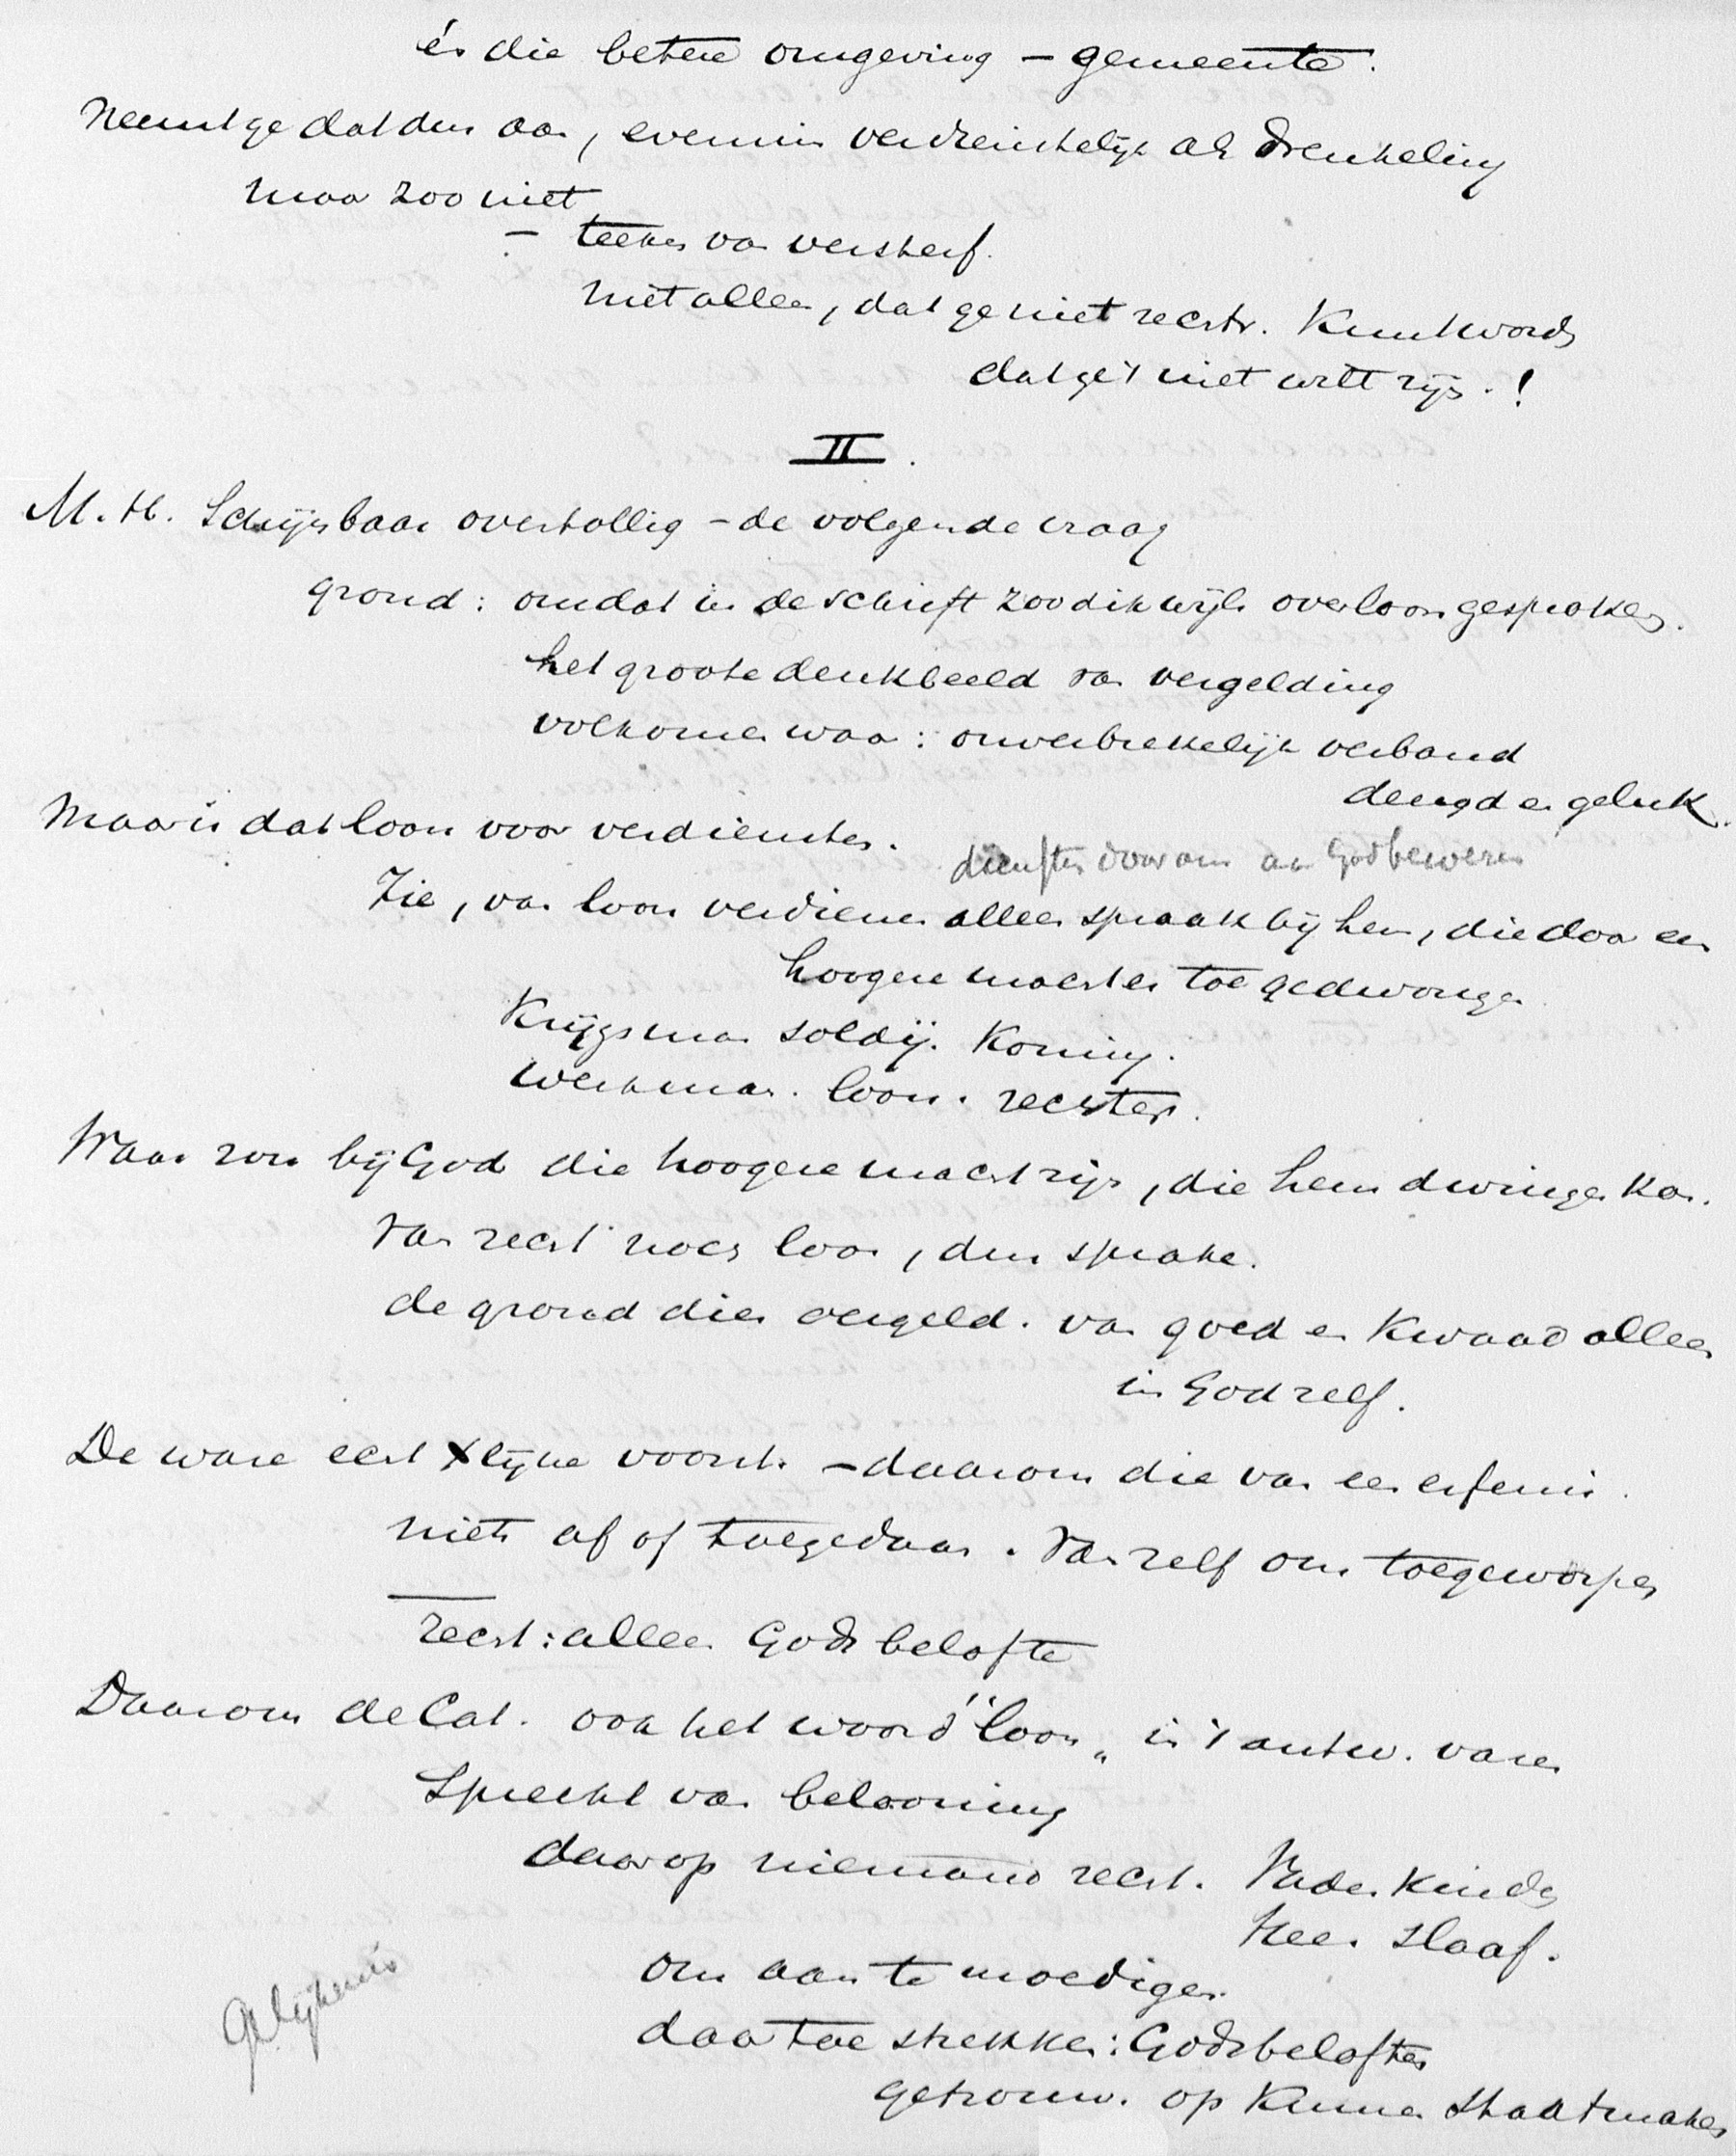 is die betere omgeving – gemeente.
Neemt ge dat dus aan, evenmin verdrenkelijk als drenkeling
maar zoo niet
– teeken van versterf.
niet alleen, dat ge niet rechtv. kunt worden
dat ge 't niet wilt zijn.!
II.
M. H. Schijnbaar overtollig – de volgende vraag
grond: omdat in de schrift zoo dikwijls over loon gesproken.
het groote denkbeeld van vergelding
volkomen waar: onverbrekelijk verband
deugd en geluk.
Maar is dat loon voor verdiensten.
diensten door ons aan God bewezen
Zie, van loon verdienen alleen spraak bij hen, die door een
hoogere macht er toe gedwongen
Krijgsman soldij. Koning.
werkman. loon. rechter.
Waar zou bij God die hoogere macht zijn, die hem dwingen kan.
Van recht noch loon, dus sprake.
de grond dier vergeld. van goed en kwaad alleen
in God zelf.
De ware echt Xlijke voorst. – daarom die van een erfenis.
niets af of toegedaan. Van zelf ons toegeworpen
recht: alleen Gods belofte
Daarom de Cat. ook het woord "loon„ in 't antw. varen
Spreekt van belooning
daarop niemand recht. Vader kinders
Heer slaaf.
om aan te moedigen.
daartoe strekken: Gods beloften
getrouw. op kunnen staat maken
Gelijkenis